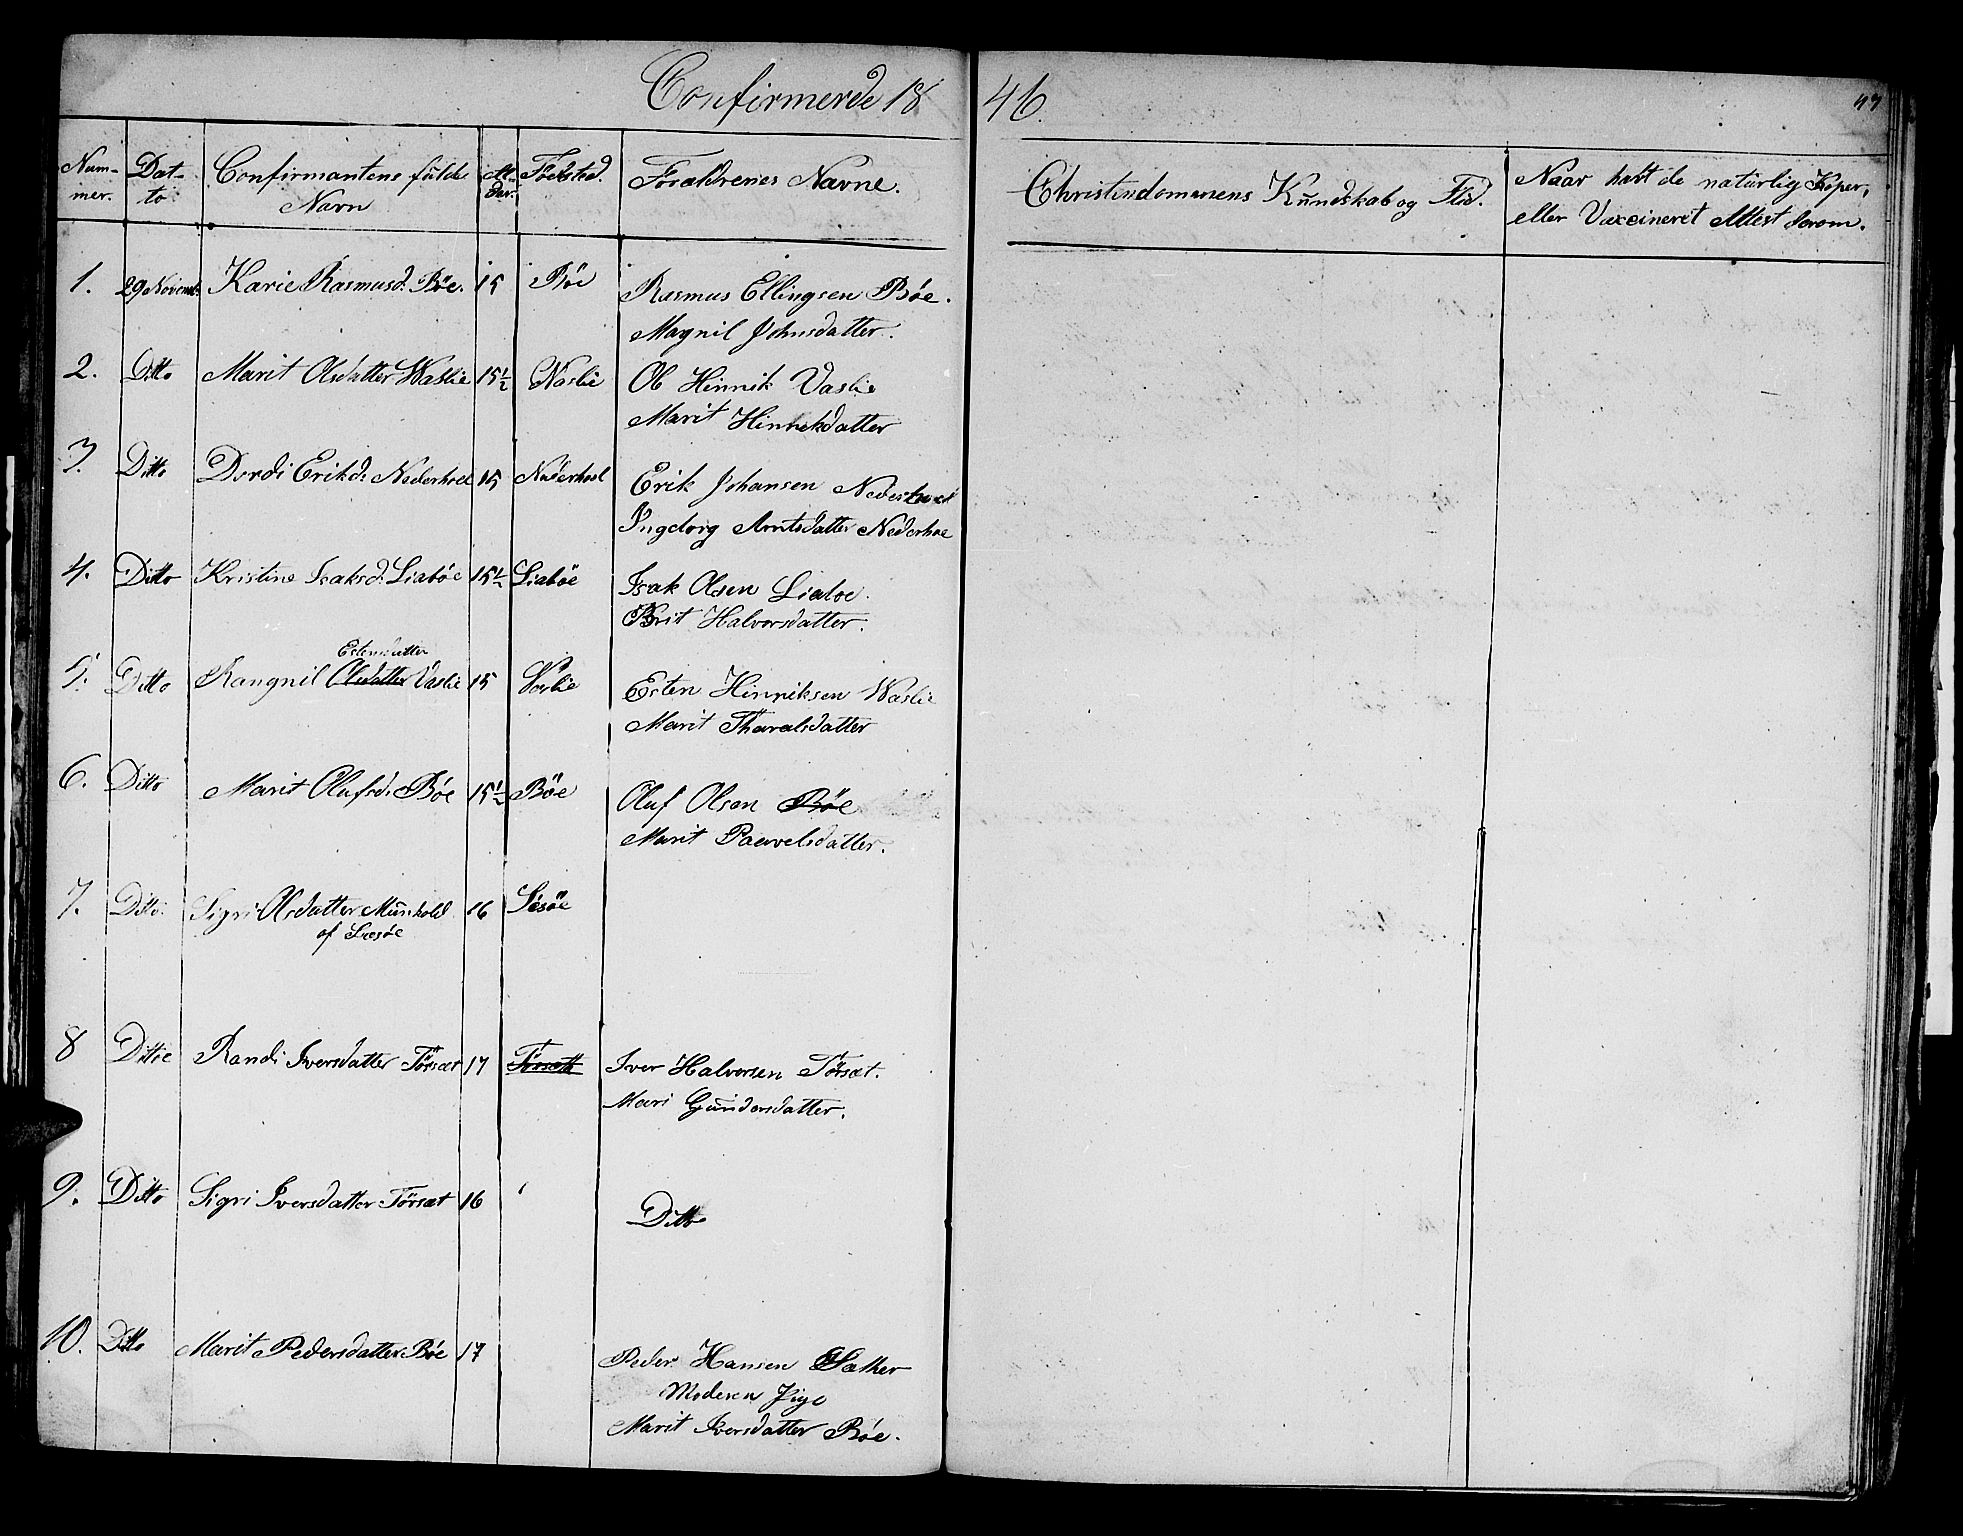 Confirmerde 1846.
47
Num-
mer.
Dat-
to
Confirmantens fulde
Navn
Al-
der.
Födsted.
Forældrenes Navne.
Christendommens Kundskab og Flid.
Naar havt de naturlig Koper,
eller Vaxcineret Attest derom.
1. 29 Novemb. Karie Rasmusd. Bóe. 15 Bóe Rasmus Ellingsen Bóe.
Magnil Johnsdatter.
2. Ditto Marit Olsdatter Waslie 15½ Vaslie Ol Hinnik Vaslie
Marit Hinnikdatter
3. Ditto Dordi Erikd. Nederhoel 15 Nederhoel Erik Johansen Nederhoel
Ingeborg Arntsdatter Nederhoe
4. Ditto Kristine Isaksd. Liabóe 15½ Liabóe Isak Olsen Liaboe.
Brit Halvorsdatter.
Estensdatter
5. Ditto Rangnil Olsdatter Vaslie 15 Vaslie Esten Hinriksen Waslie
Marit Tharalsdatter
6. Ditto Marit Olufsd. Bóe 15½ Böe Oluf Olsen Böe
Marit Paavelsdatter.
7. Ditto. Sigri Olsdatter Munkold 16 Lésöe
af Læsóe
8 Ditto Randi Iversdatter Törsæt 17 Törsætt Iver Halvorsen Törsæt.
Mari Gundersdatter.
9. Ditto Sigri Iversdatter Törsæt 16 Ditto
10. Ditto Marit Pedersdatter Bóe 17 Peder Hansen Sæther
Moderen Pige
Marit Iversdatter Bóe.